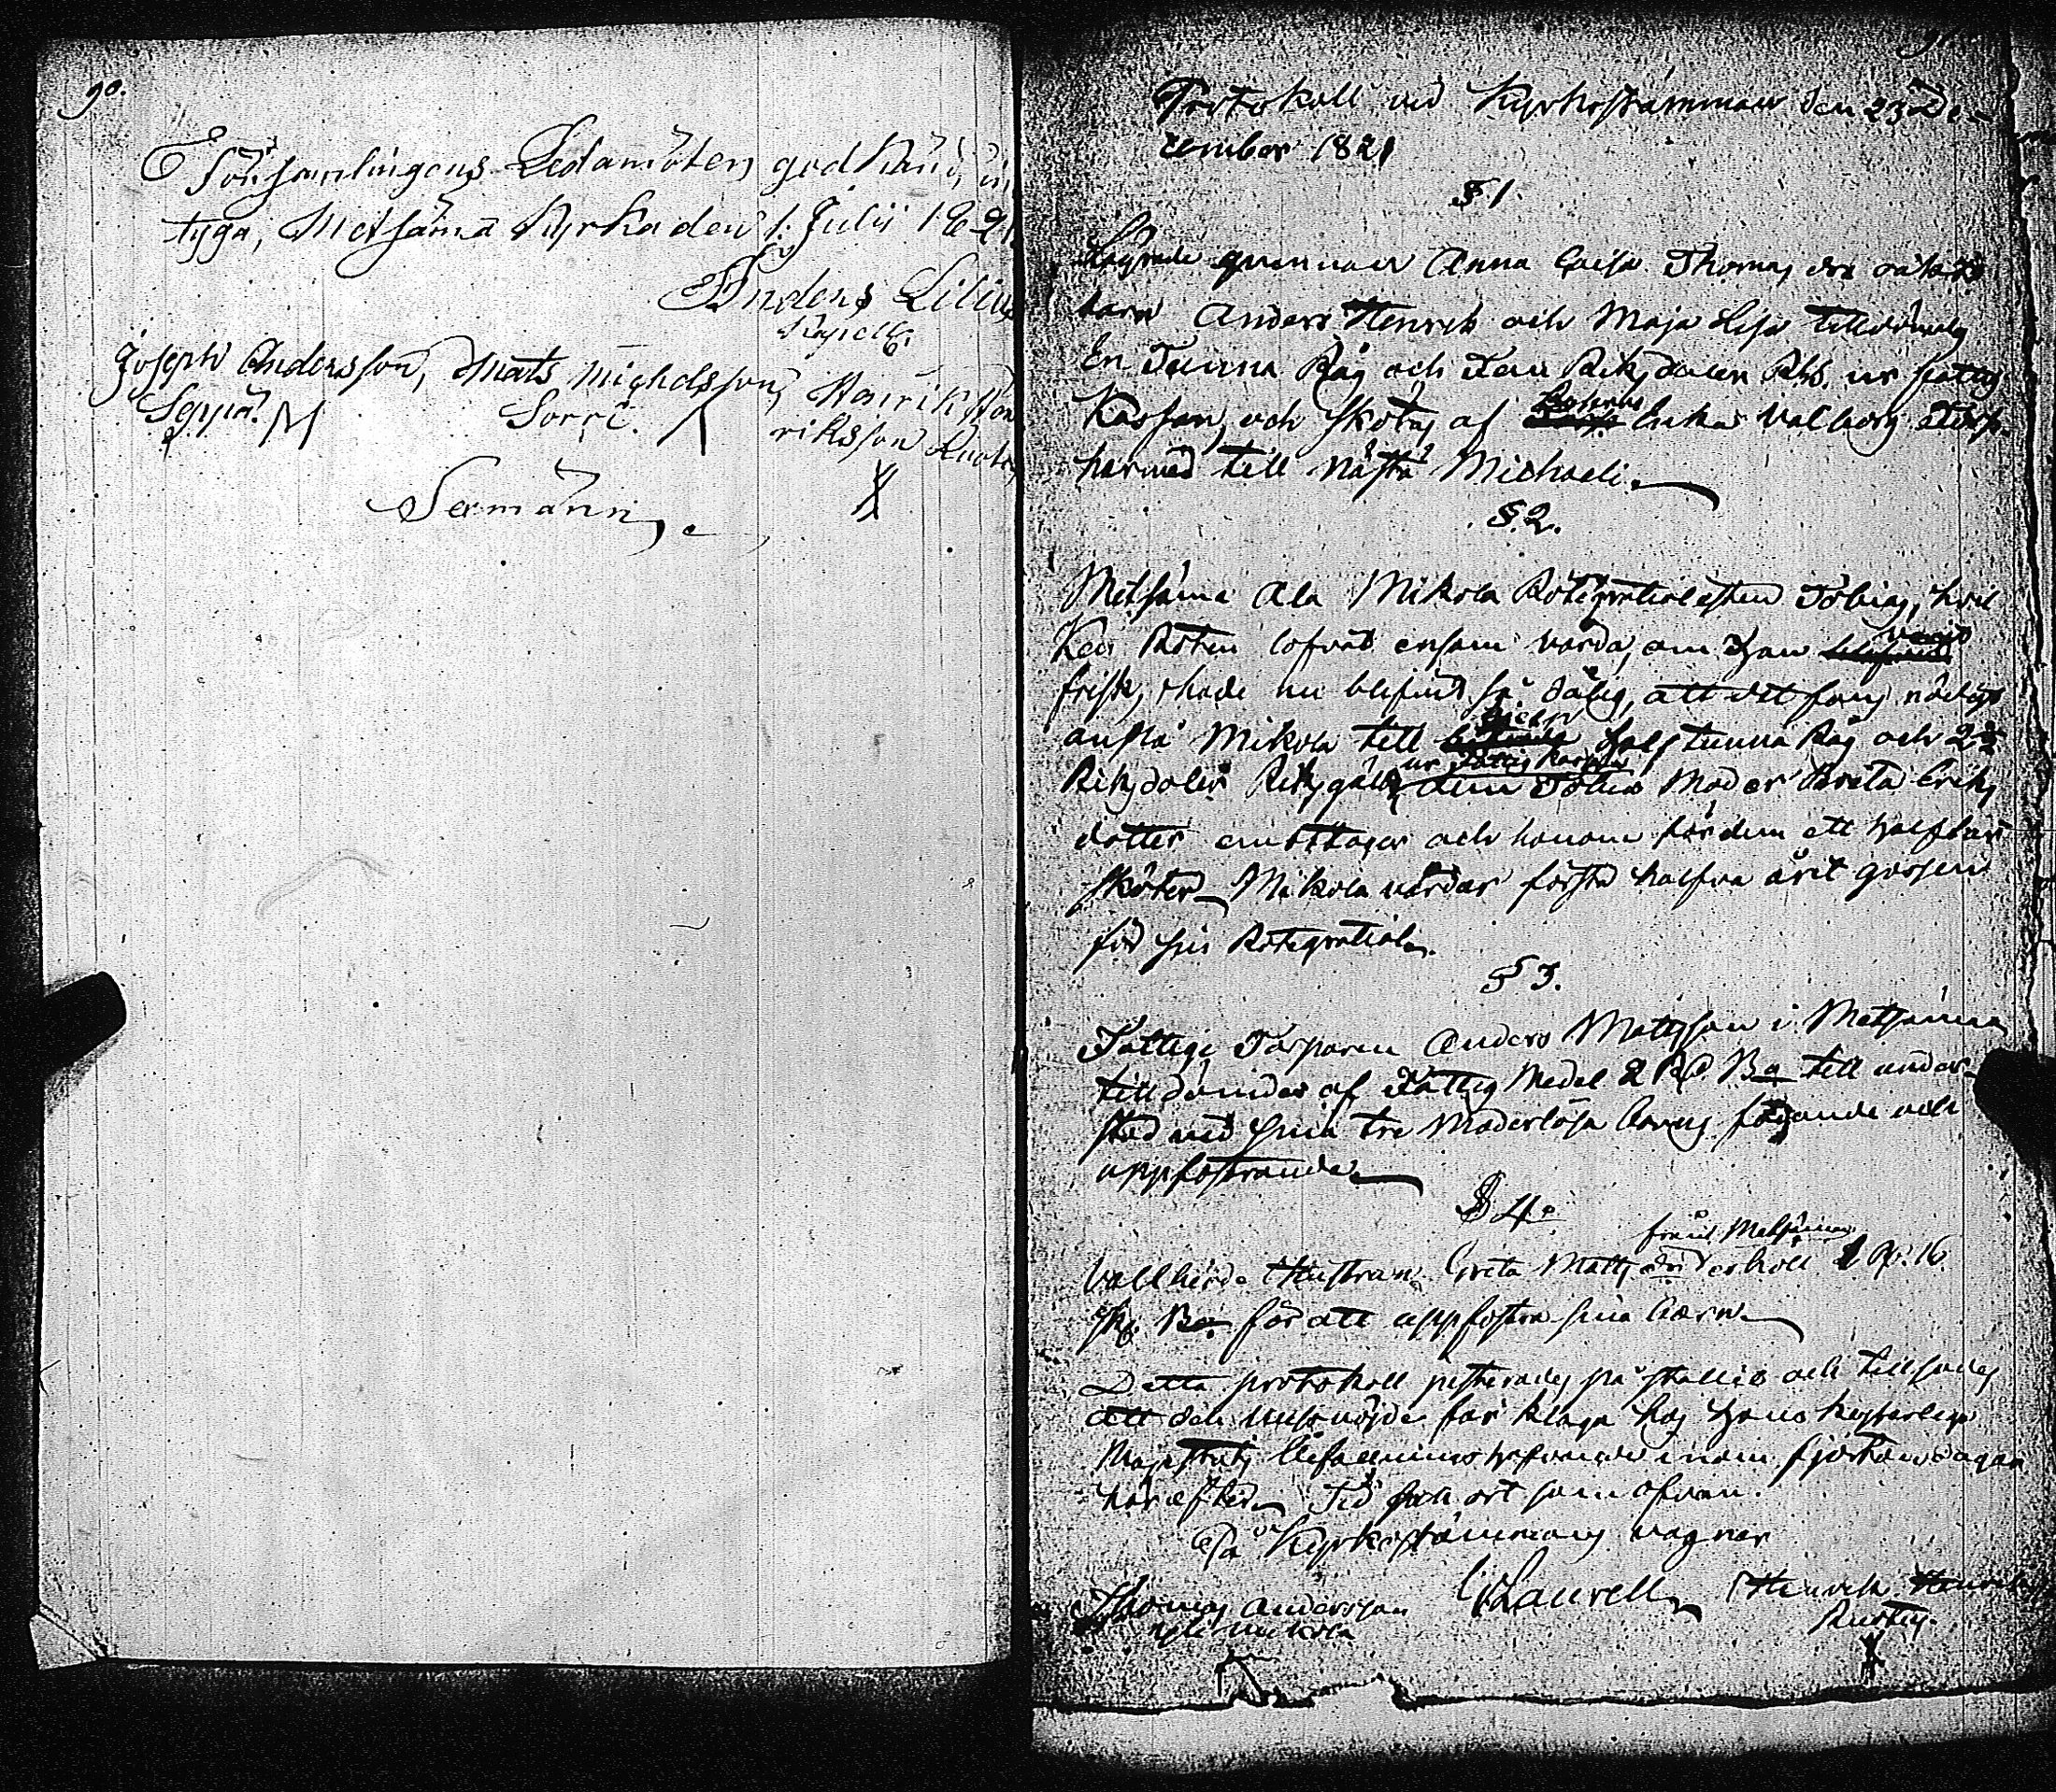 90.
Församlingens Ledamöters godkänd,
tyga, Metsämå Kyrka den 1. Julii 1821.
Anders Lilius
Kapell:
Joseph Andersson, Mats Michelsson, Henrik Hen
Seppä. Sorri. riksson
Sexmänn
91.
Protokoll vid Kyrkostämman den 23 De-
cember 1821
§ 1.
qvinnan Anna Caisa Thomas
barn Anders Henrik och Maja Lisa tilldömdes
En Tunna Råg och Fem Riksdaler Rgs. ur fattig
Kassan, och skötas af Enka Valborg
härmed till nästa Michaeli.
§. 2.
Metsämå Ala Mikola Rotegratialisten Tobias, hvil
ken Roten lofvat ensam vårda, om han varit
frisk, hade nu blifvit så dålig, att det fans nödigt
anslå Mikola till hjelp half tunna Råg och 2½
Riksdaler Riksgälds ur Fattig Kassan den Tobias Moder Greta Eriks
dotter emottager och honom för dem ett halft år
sköter. Mikola vårdar första halfva året gossen
för sin Rotegratial.
§ 3.
Fattige Torparen Anders Mattsson i Metsämå
tilldömdes af Fattig Medel 2 Rd. Bo till under-
stöd vid sina tre Moderlösa barns födande och
uppfostrande.
§ 4.
från Metsämå
Vallhjrde Hustrun Greta Matts erhöll 1 Rd. 16
sk. Bo. för att uppfostra sina barn.
Detta protokoll justerades på stället och tillsades
att den missnöjde får klaga hos Hans Kejserlige
Majestäts Befallningshafvande inom fjorton dagar
härefter. Tid och ort som ofvan.
På Kyrkostämmans vagnar
Thomas Andersson G Laurell Henrik Henriks
Mikola